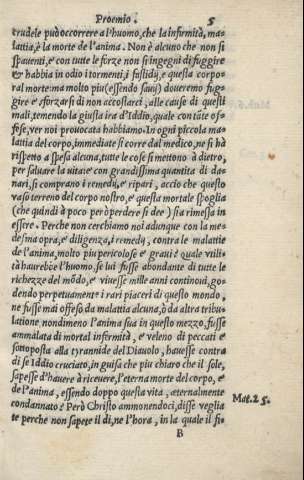 Proemio. 5
crudele può occorrere a l'huomo, che la infirmità, ma
lattia, è la morte de l'anima. Non è alcuno che non si
spauenti, e con tutte le forze non si ingegni di fuggire
& habbia in odio i tormenti, i fastidij, e questa corpo
ral morte: ma molto piu (essendo saui) douremo fug
gire e sforzarsi di non accostarci, alle cause di questi
mali, temendo la giusta ira d'Iddio, quale con tāte of
fese, ver noi prouocata habbiamo. In ogni piccola ma
lattia del corpo, immediate si corre dal medico, ne si hà
rispetto a spesa alcuna, tutte le cose si mettono à dietro,
per saluare la vita: e con grandissima quantita di da
nari, si comprano i remedij, e ripari, accio che questo
vaso terreno del corpo nostro, e questa mortale spoglia
(che quando à poco però perdere si dee) sia rimessa in
essere. Perche non cerchiamo noi adunque con la me
desma opra, e diligenza, i remedij, contra le malattie
de l'anima, molto piu pericolose e graui? quale vtili
tà haurebbe l'huomo, se lui fusse abondante di tutte le
richezze del mōdo, e viuesse mille anni continoui, go
dendo perpetuamente i rari piaceri di questo mondo,
ne fusse mai offeso, da malattia alcuna, ò da altra tribu
latione nondimeno l'anima sua in questo mezzo, fusse
ammalata di mortal infermità, e veleno di peccati e
sottoposta alla tyrannide del Diauolo, hauesse contra
di se Iddio cruciato, in guisa che piu chiaro che il sole,
sapesse d'hauere à riceuere, l'eterna morte del corpo, e
de l'anima, essendo doppo questa vita, eternalmente
condannato? Però Christo ammonendoci, disse veglia
te perche non sapete il di, ne l'hora, in la quale il fi-
Mat. 25.
B